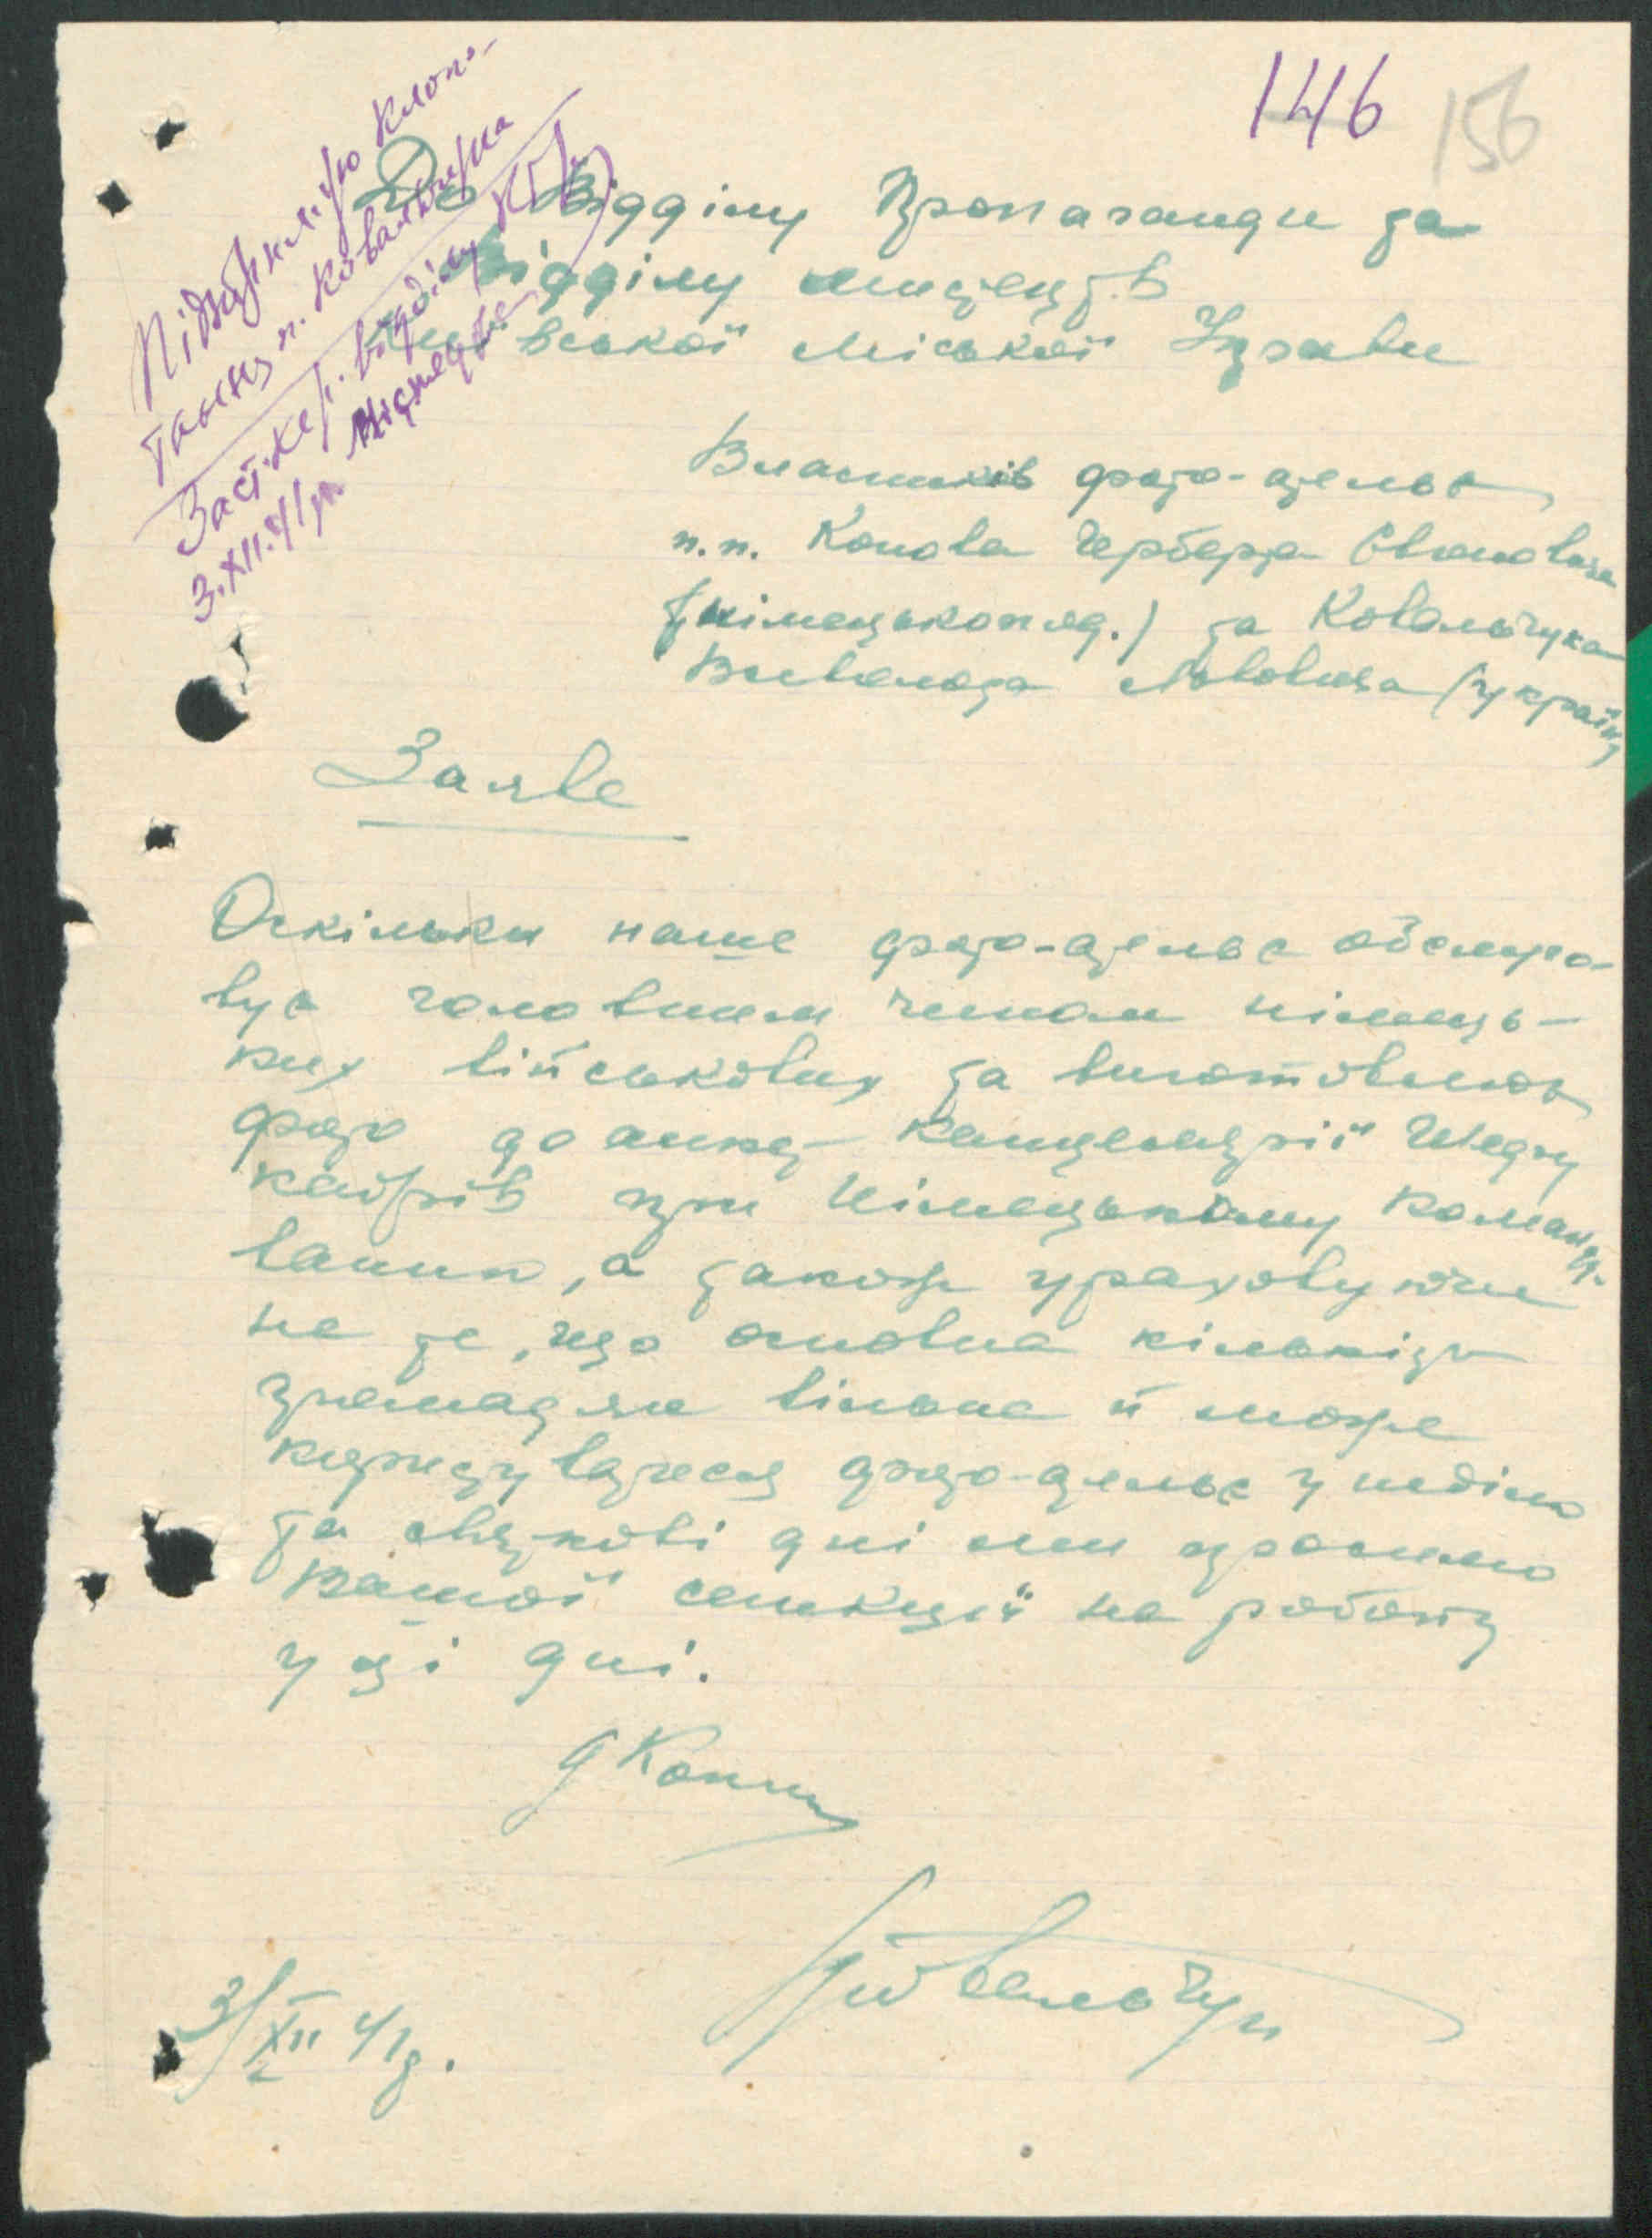 146 156
Підтримую клопо-
тання п. Ковальчука
Заст. кер. відділу
3.XII.41 р. Мистецтв
До Відділу Пропаганди та
Відділу мистецтв
Київської Міської Управи
Власників фото-ательє
п.п. Конова Герберта
(німецьк. под.) та Ковальчука
Всеволода Львовича (україн.)
Заява
Оскільки наше фото-ательє обслуго-
вує головним чином німець-
ких військових та виготовляє
фото до анкет Канцелярії Штабу
кадрів при Німецькому Команд.
ванні, а також ураховуючи
на те, що основна кількість
громадян вільна й може
користуватися фото-ательє у неділю
та святкові дні ми просимо
Вашої санкції на роботу
у ці дні.
Ковальчук
3/XII 41 р.